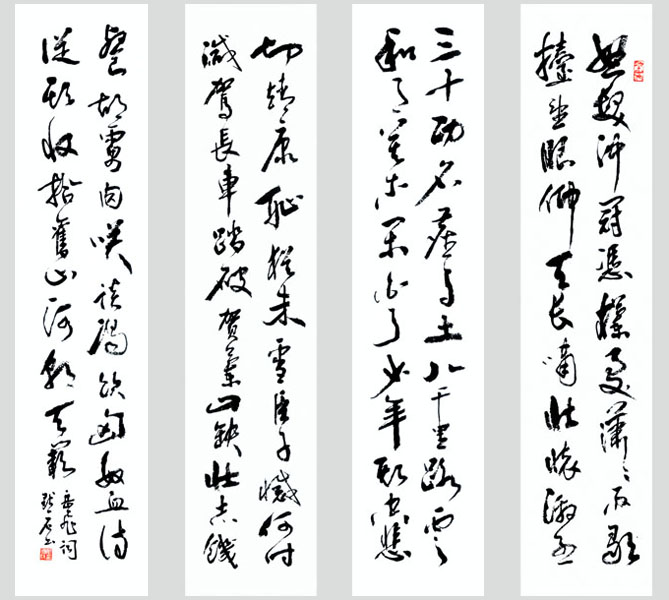 怒髮沖冠憑欄處瀟々雨歇
擡望眼仰天長嘯壯懷激烈
三十功名塵与土八千里路雲
和月莫等閑白了少年頭空悲
切靖康恥猶未雪臣子憾何時
滅駕長車踏破賀蘭山缺壯志飢
餐胡虜肉笑談渴飲匈奴血待
從頭收拾舊山河朝天闕
岳飛詞